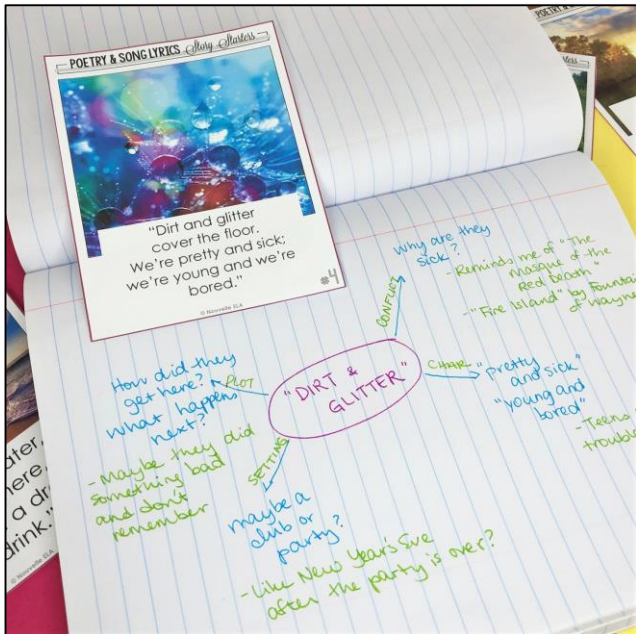 POETRY & SONG LYRICS Story Starters
"Dirt and glitter
cover the floor.
We're pretty and sick;
we're young and we're
bored."
#4
© Nouvelle ELA
"DIRT &
GLITTER"
CONFLICT
why are they
sick?
- Reminds me of "The
Masque of the
Red Death"
- "Fire Island" by Fountains
of Wayne
CHAR.
"pretty
and sick"
"young and
bored"
- Teens
trouble
PLOT
How did they
get here?
What happens
next?
- Maybe they did
something bad
and don't
remember
SETTING
maybe a
club or
party?
- Like New Year's Eve
after the party is over?
ater,
here,
a dr
drink."
© Nouvelle ELA